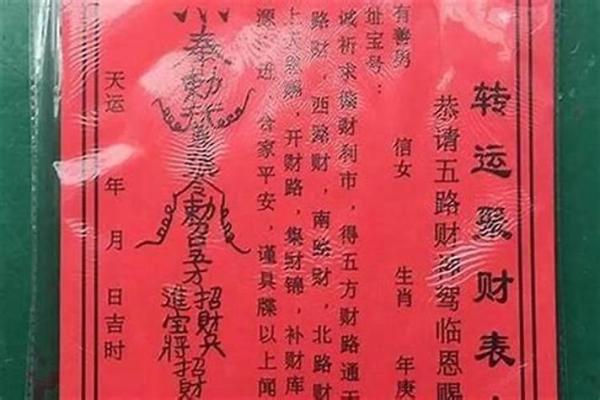 转运聚财表
恭请五路财神驾临恩赐
有善男 信女 生肖 年庚
址宝号：
诚祈求 财利市，得五方财路通
路财，西路财，南路财，北路财
上天 ，开财路，集财锦，补财库
源 进，合家平安，谨具牒以上闻
奉勅
令勅召五方招財
進宝將招財
天运 年 月 日吉时